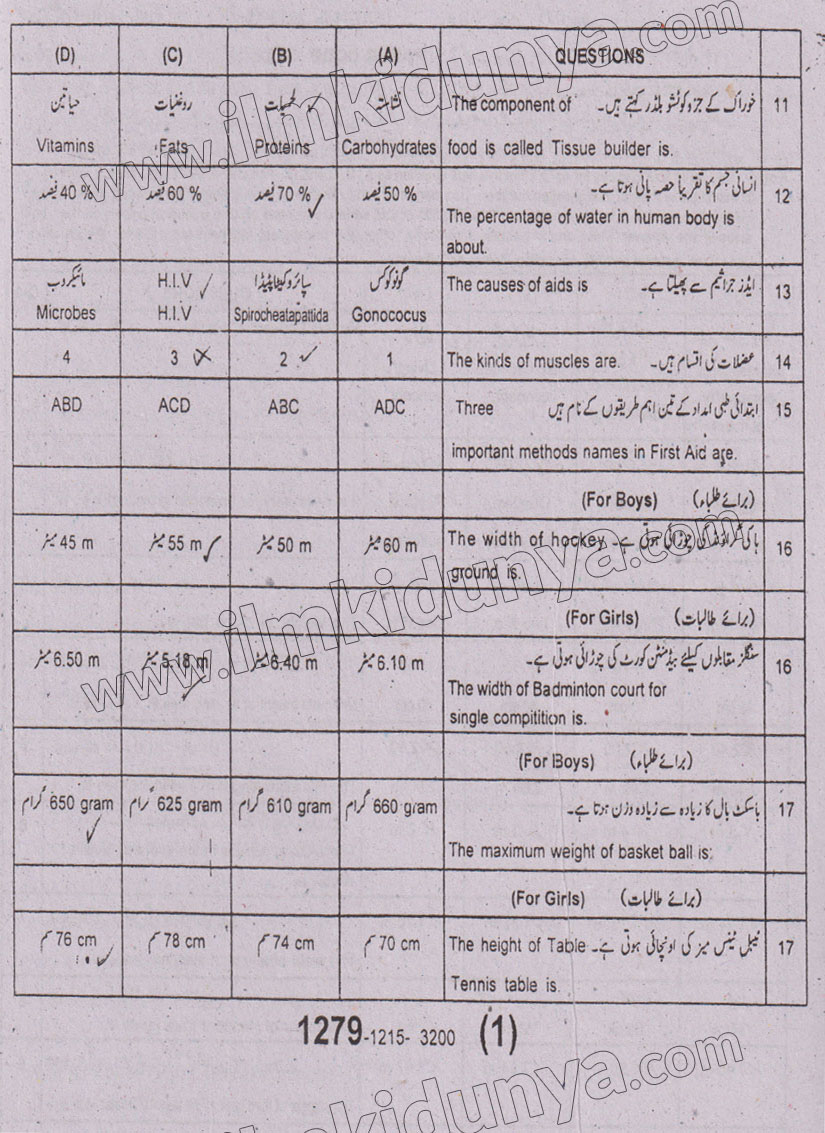 (D) (C) (B) (A) QUESTIONS
حیاتین روغنیات لحمیات نشاستہ The component of خوراک کے جزو کو ٹشو بلڈر کہتے ہیں۔ 11
Vitamins Fats Proteins Carbohydrates food is called Tissue builder is.
40 % فیصد 60 % فیصد 70 % فیصد 50 % فیصد انسانی جسم کا تقریباً حصہ پانی ہوتا ہے۔ 12
The percentage of water in human body is
about.
مائیکروب H.I.V گونوکوکس The causes of aids is ایڈز جراثیم سے پھیلتا ہے۔ 13
Microbes H.I.V Spirocheatapattida Gonococus
4 3 2 1 The kinds of muscles are. عضلات کی اقسام ہیں۔ 14
ABD ACD ABC ADC Three ابتدائی طبی امداد کے تین اہم طریقوں کے نام ہیں 15
important methods names in First Aid are.
(For Boys) (برائے طلباء)
45 m میٹر 55 m میٹر 50 m میٹر 60 m میٹر The width of hockey ہاکی گراؤنڈ کی چوڑائی ہوتی ہے۔ 16
ground is.
(For Girls) (برائے طالبات)
6.50 m میٹر 5.18 m میٹر 6.40 m میٹر 6.10 m میٹر سنگلز مقابلوں کیلئے بیڈمنٹن کورٹ کی چوڑائی ہوتی ہے۔ 16
The width of Badminton court for
single compitition is.
(For Boys) (برائے طلباء)
650 gram گرام 625 gram گرام 610 gram گرام 660 gram گرام باسکٹ بال کا زیادہ سے زیادہ وزن ہوتا ہے۔ 17
The maximum weight of basket ball is:
(For Girls) (برائے طالبات)
76 cm سم 78 cm سم 74 cm سم 70 cm سم The height of Table ٹیبل ٹینس میز کی اونچائی ہوتی ہے۔ 17
Tennis table is.
1279-1215- 3200 (1)
www.ilmkidunya.com
www.ilmkidunya.com
ilmkidunya.com